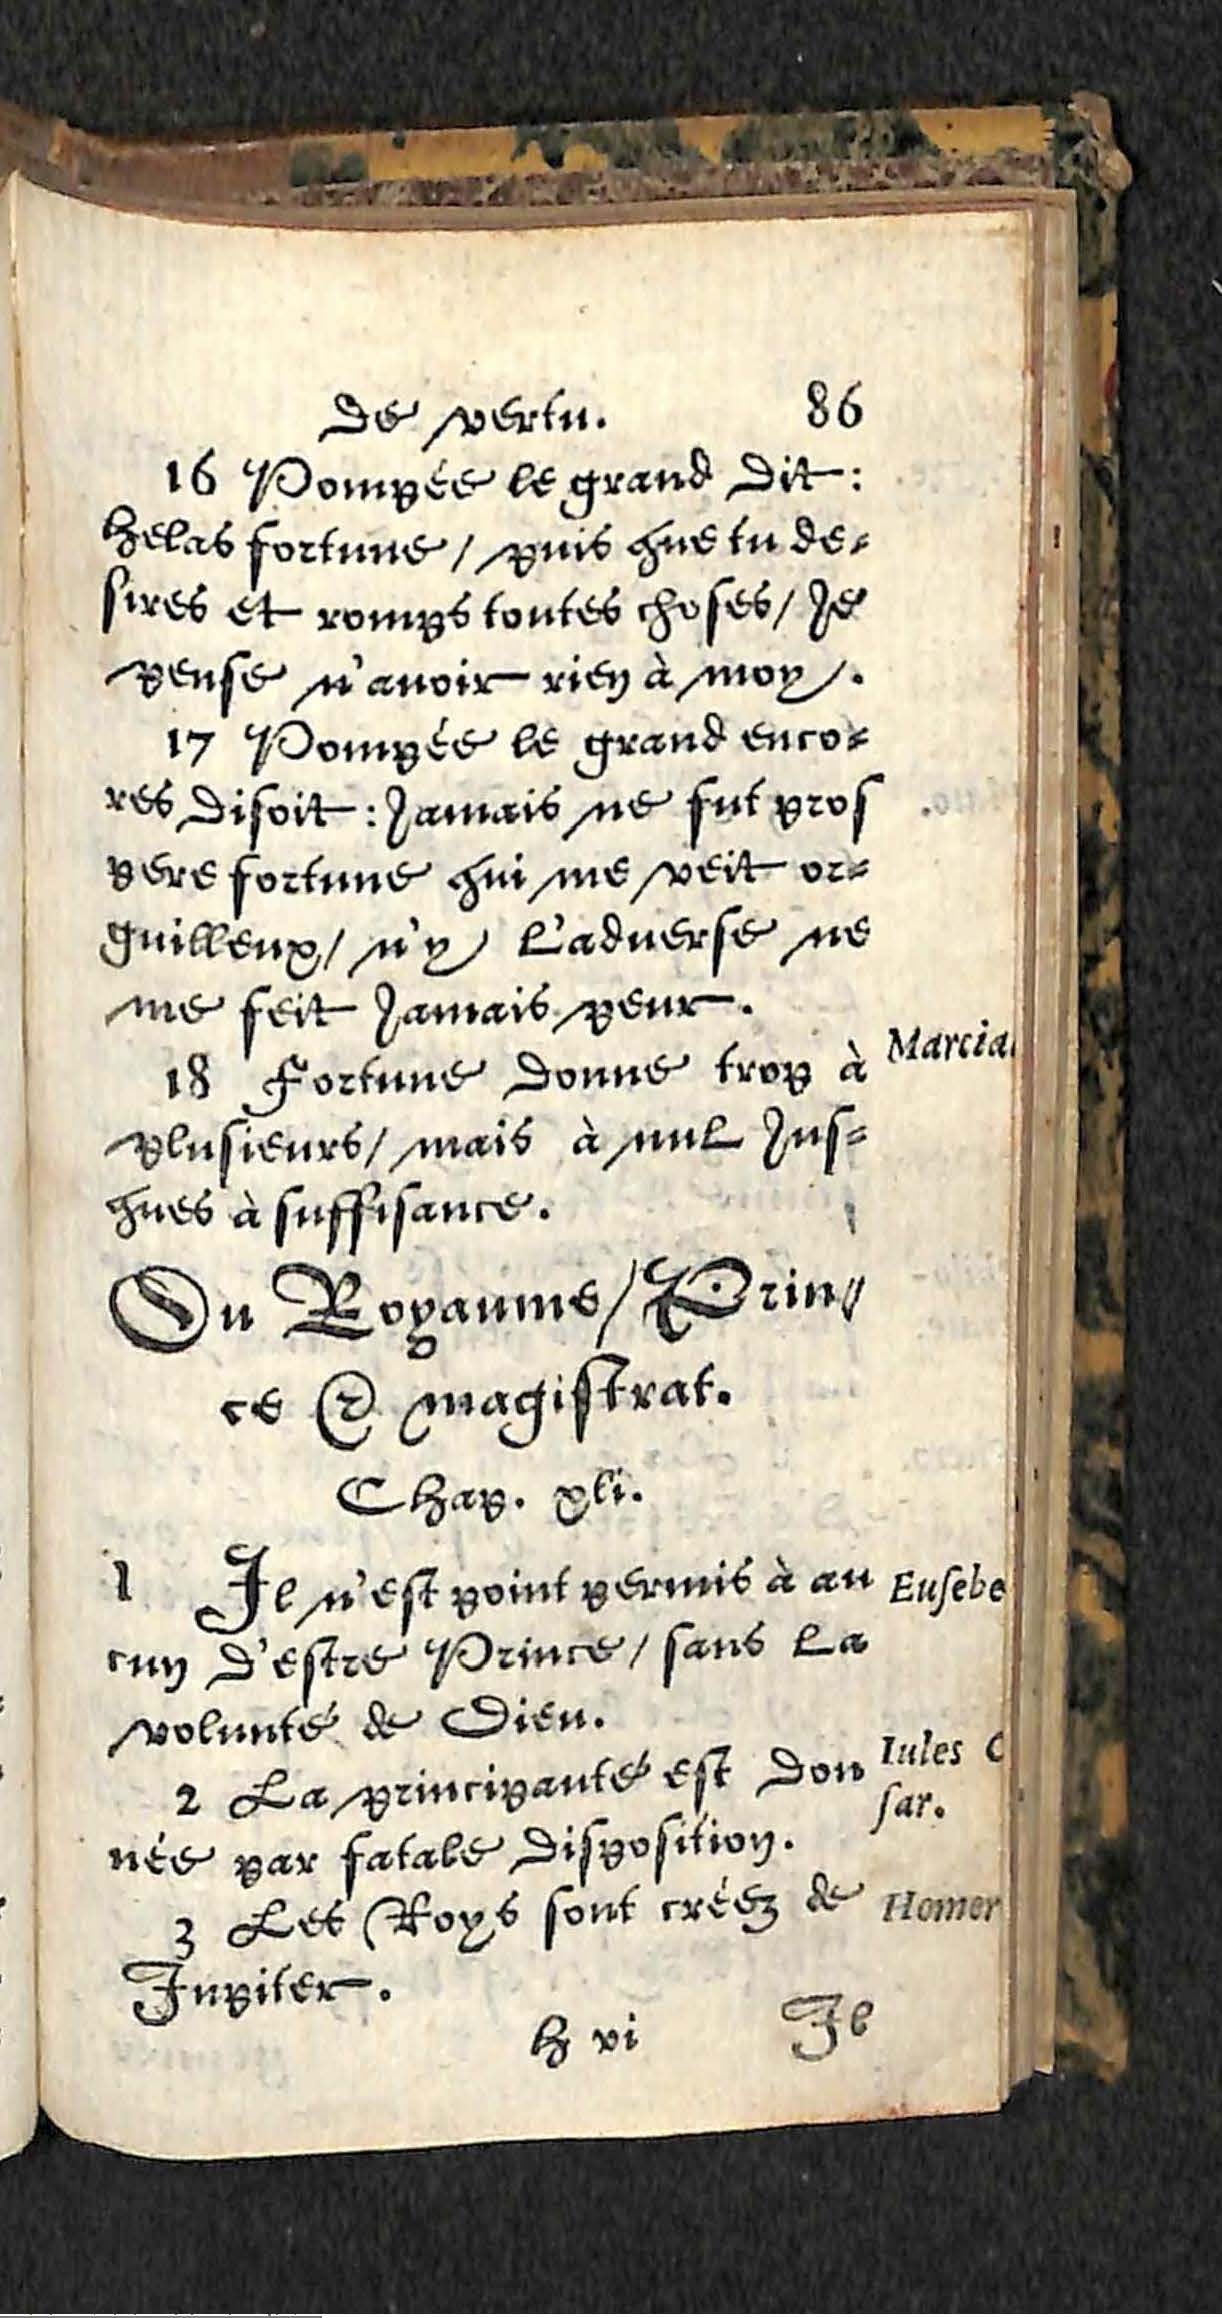 de vertu. 86
16 Pompée le grand dit:
helas fortune/ puis que tu de-
sires et romps toutes choses/ Je
pense n'avoir rien à moy.
17 Pompée le grand enco-
res disoit: Jamais ne fut pros
pere fortune qui me veit or-
guilleux/ n'y l'aduerse ne
me feit Jamais peur.
18 Fortune donne trop à
Marcial
plusieurs/ mais à nul Jus-
ques à suffisance.
Du Royaume/ Prin-
ce & magistrat.
Chap. xli.
1 Il n'est point permis à au
Eusebe
cun d'estre Prince/ sans la
volunté de Dieu.
2 La principauté est don
Iules C
née par fatale disposition.
sar.
3 Les Roys sont créez de
Homer
Jupiter.
h vi Il